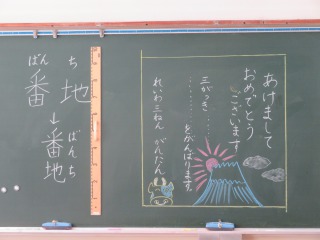 ばん ち
番 地
↓
番地
ばんち
あけまして
おめでとう
ございます
三がっき
‥‥‥‥‥をがんばります。
れいわ三ねん がんたん